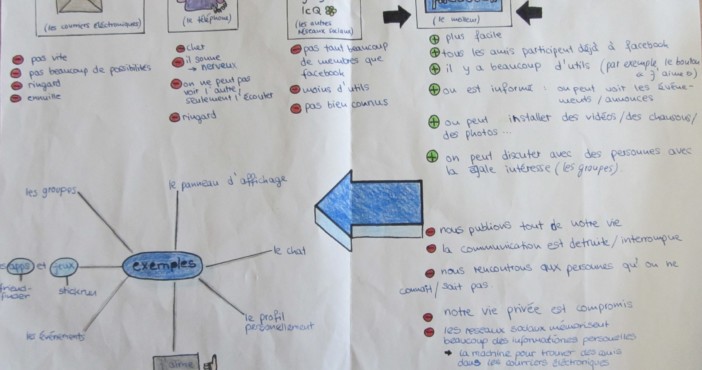 (les courriers électroniques)
pas vite
pas beaucoup de possibilités
ringard
ennuille
(le téléphone)
cher
il sonne
→ nerveux
on ne peut pas
voir l'autre/
seulement l'écouter
ringard
IcQ
(les autres
réseaux sociaux)
pas tant beaucoup
de membres que
facebook
moins d'utils
pas bien connus
(le meilleur)
plus facile
tous les amis participent déjà à facebook
il y a beaucoup d'utils (par exemple le bouton
„J'aime")
on est informé : on peut voir les événe-
ments / annonces
on peut installer des vidéos / des chansons /
des photos ...
on peut discuter avec des personnes avec
la égale intéresse (les groupes).
nous publions tout de notre vie
la communication est detruite / interrompue
nous rencontrous aux personnes qu'on ne
connaît / sait pas.
notre vie privée est compromis
les reseaux sociaux mémorisent
beaucoup des informationes personelles
→ la machine pour trouver des amis
dans les courriers électroniques
exemples
les groupes
le panneau d'affichage
le chat
le profil
personellement
J'aime
les événements
apps et jeux
finder